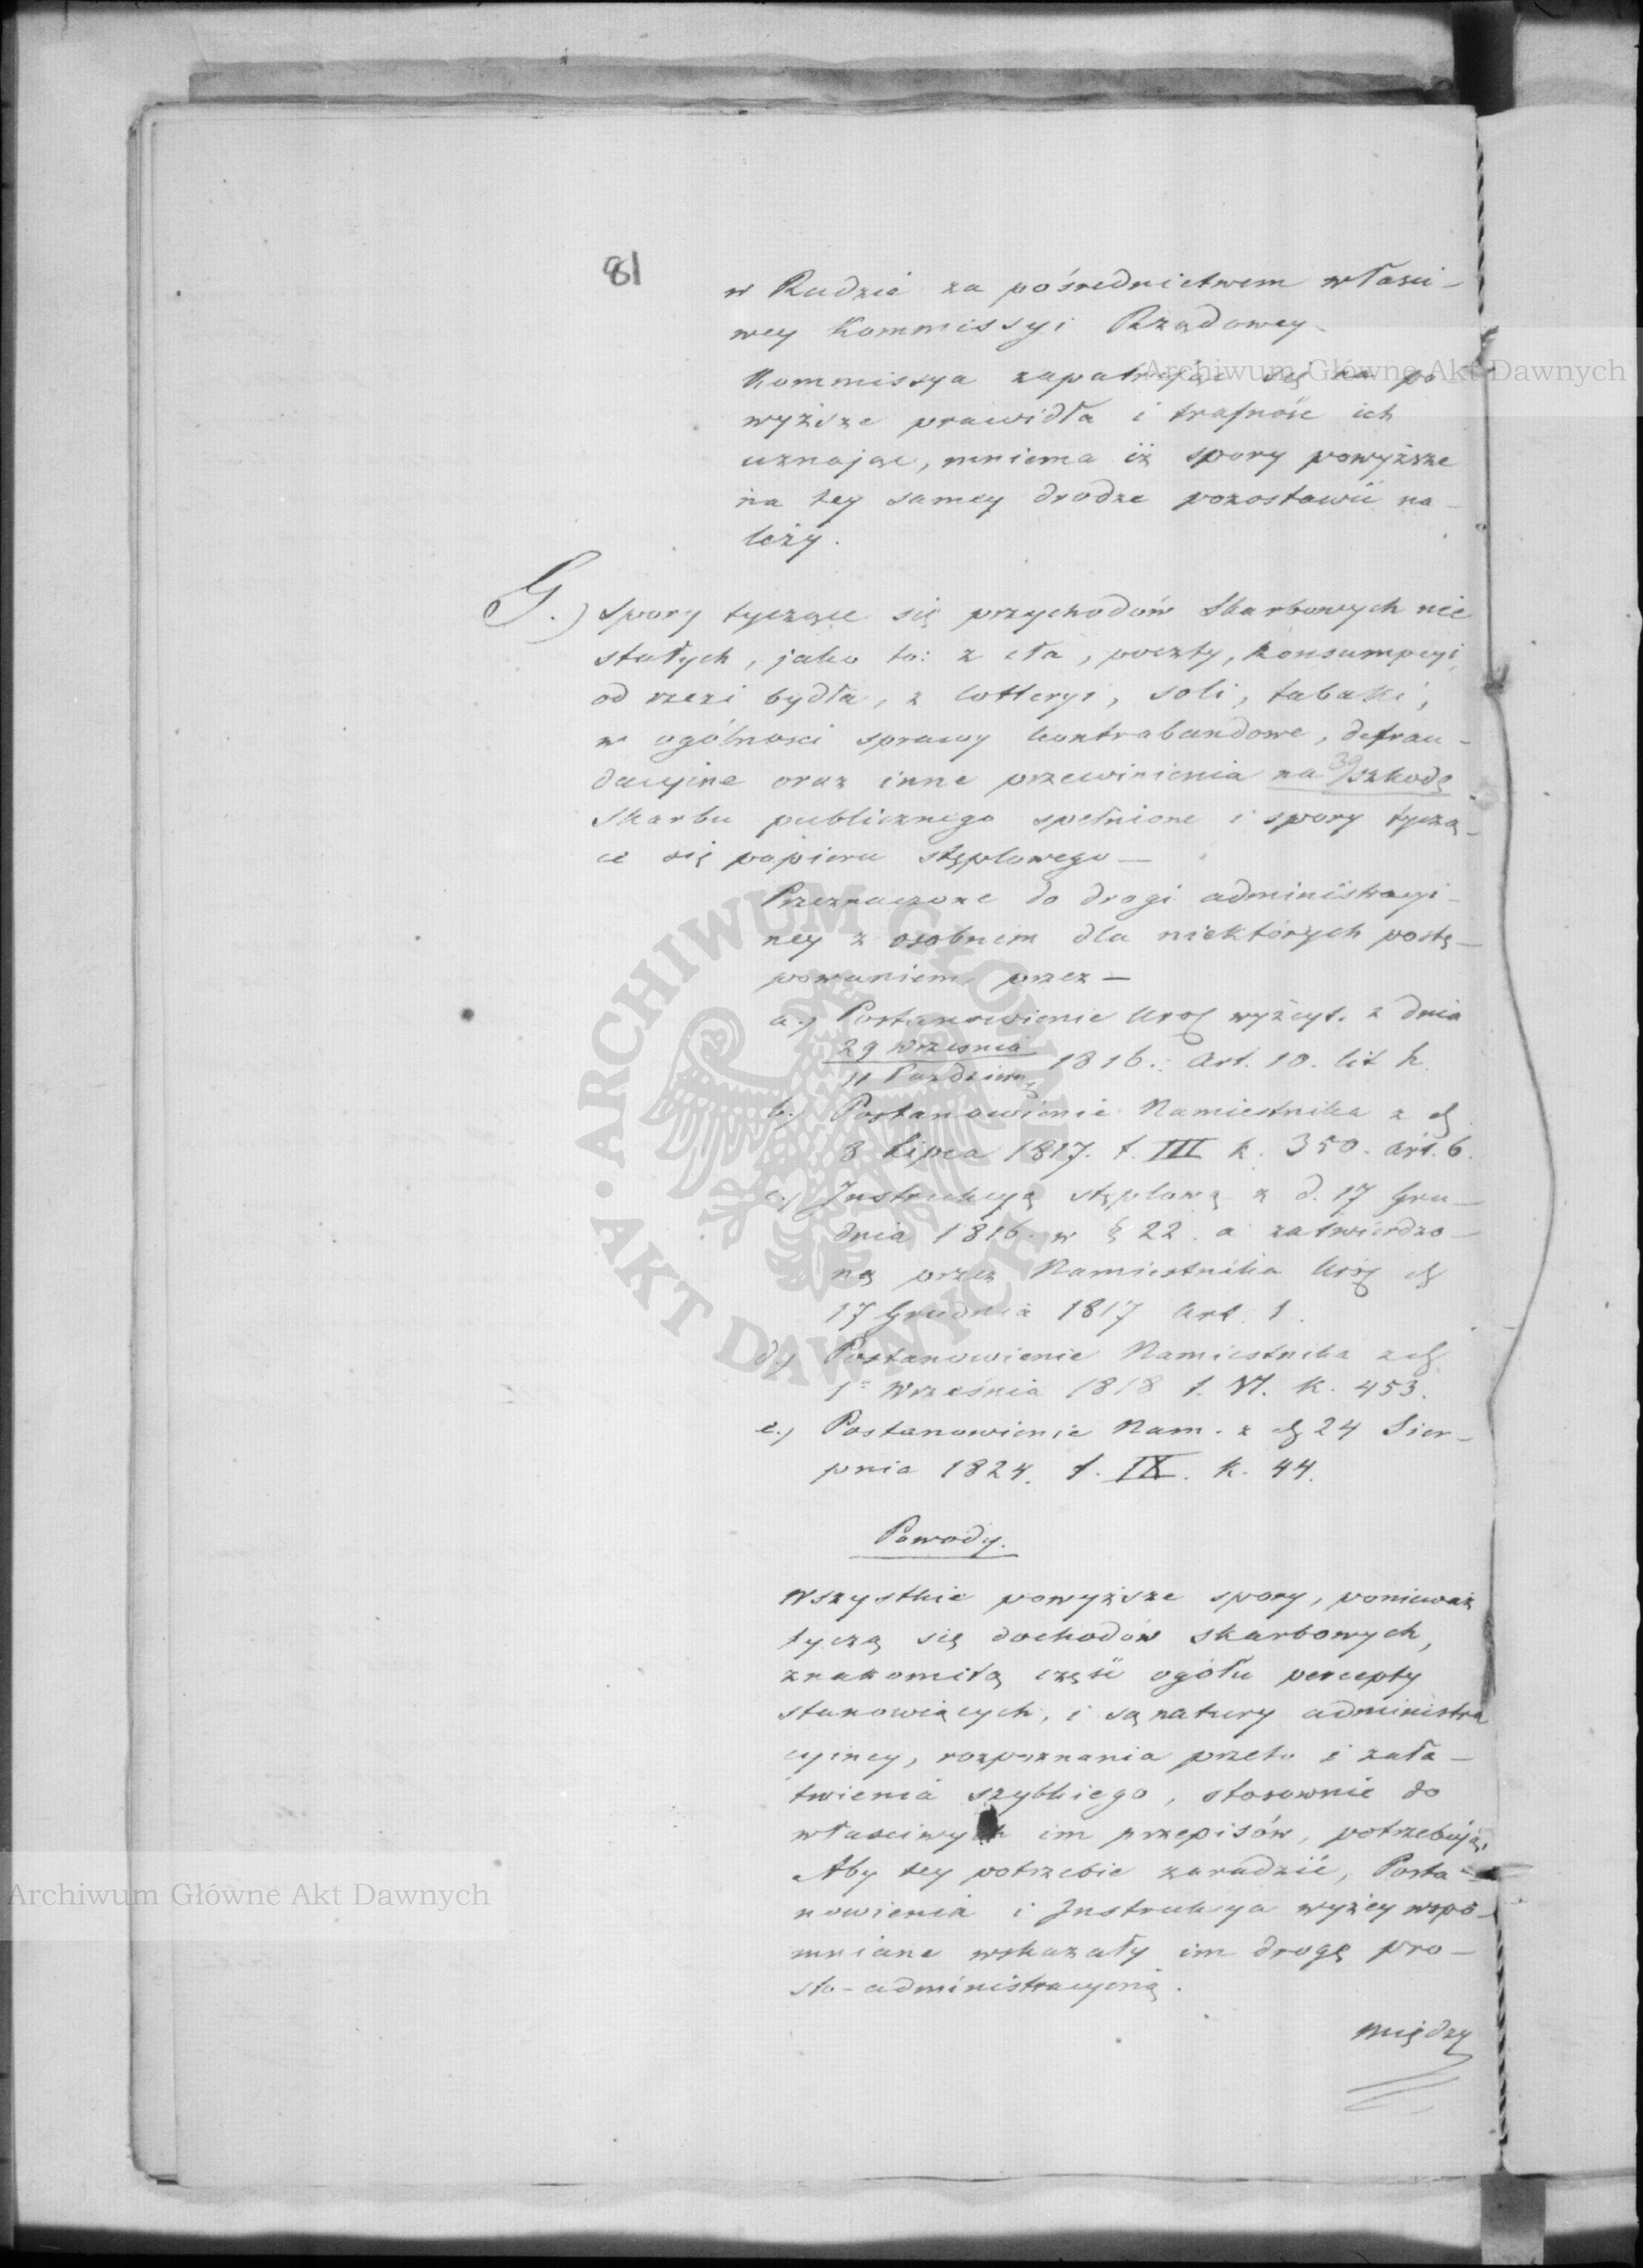 81
w Radzie za pośrednictwem właści-
wey Kommissyi Rządowey.
Kommissya zapatrując się na po
wyższe prawidła i trafność ich
uznając, mniema iż spory powyższe
na tey samey drodze pozostawić na-
leży.
G.) Spory tyczące się przychodów Skarbowych nie
stałych, jako to: z cła, poczty, konsumpcyi,
od rzezi bydła, z lotteryi, soli, tabaki,
w ogólności sprawy kontrabandowe, defrau-
dacyjne oraz inne przewinienia na szkodę
39
Skarbu publicznego spełnione i spory tyczą-
ce się papieru stęplowego—
Przeznaczone do drogi administracyi-
ney z osobnem dla niektórych postę-
powaniem, przez—
a.) Postanowienie Król wyżcyt. z dnia
29 Września
11 Paździer. 1816. Art. 10. lit h.
b.) Postanowienie Namiestnika z d.
8 Lipca 1817. t. III k. 350. Art. 6.
c.) Instrukcyą stęplową z d. 17 Gru-
dnia 1816. w § 22. a zatwierdzo-
ną przez Namiestnika Król d.
17 Grudnia 1817 Art. 1.
d.) Postanowienie Namiestnika z d.
1o Września 1818 t. VI. k. 453.
e.) Postanowienie Nam. z d. 24 Sier-
pnia 1824. t. IX. k. 44.
Powody.
Wszystkie powyższe spory, ponieważ
tyczą się dochodów skarbowych,
znakomitą część ogółu percepty
stanowiących, i są natury administra
cyiney, rozpoznania przeto i zała-
twienia szybkiego, stosownie do
właściwych im przepisów, potrzebują.
Aby tey potrzebie zaradzić, Posta-
nowienia i Instrukcya wyżey wspo-
mniane wskazały im drogę pro-
sto-administracyjną.
między
Archiwum Główne Akt Dawnych
Archiwum Główne Akt Dawnych
ARCHIWUM GŁÓWNE • AKT DAWNYCH •